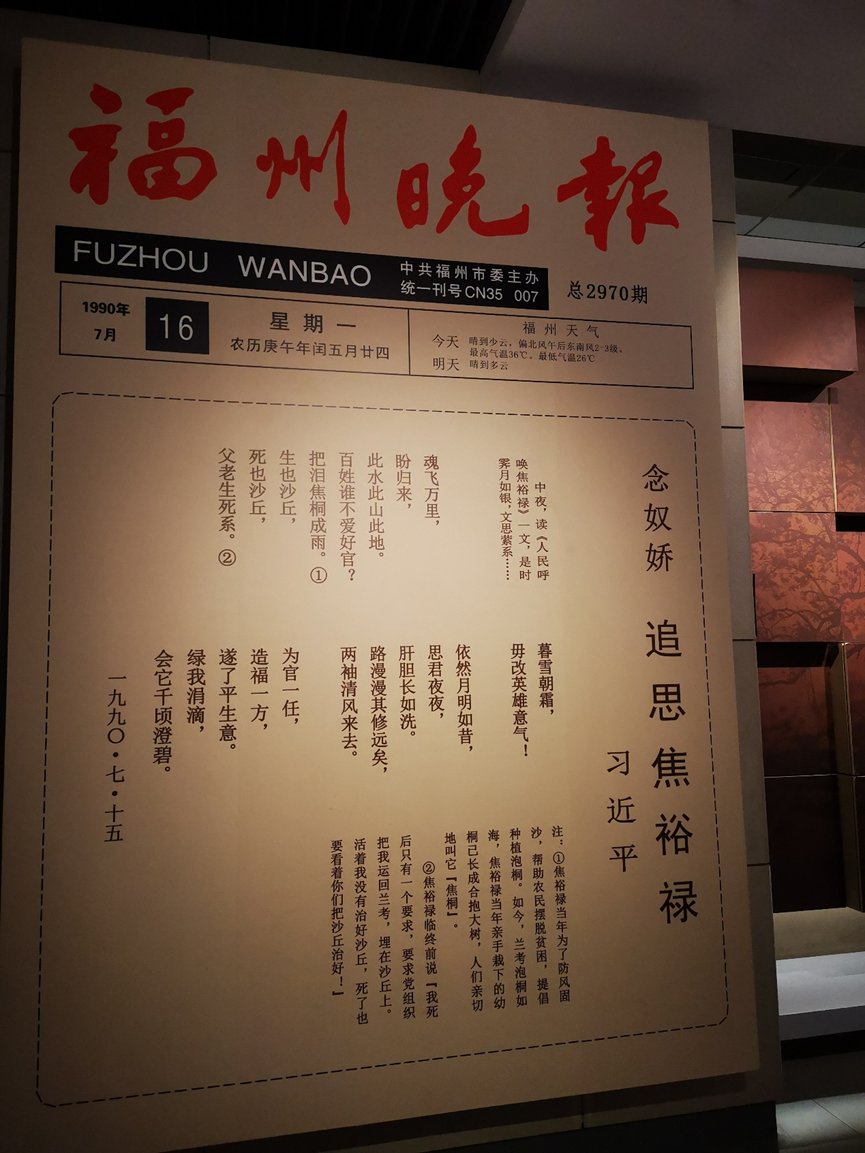 福州晚報
FUZHOU WANBAO
中共福州市委主办
统一刊号CN35 007
总2970期
1990年
7月
16
星期一
农历庚午年闰五月廿四
福州天气
今天 晴到少云，偏北风午后东南风2-3级。
最高气温36℃。最低气温26℃
明天 晴到多云
念奴娇 追思焦裕禄
习近平
中夜，读《人民呼
唤焦裕禄》一文，是时
霁月如银，文思萦系……
魂飞万里，
盼归来，
此水此山此地。
百姓谁不爱好官？
把泪焦桐成雨。①
生也沙丘，
死也沙丘，
父老生死系。②
暮雪朝霜，
毋改英雄意气！
依然月明如昔，
思君夜夜，
肝胆长如洗。
路漫漫其修远矣，
两袖清风来去。
为官一任，
造福一方，
遂了平生意。
绿我涓滴，
会它千顷澄碧。
一九九〇·七·十五
注：①焦裕禄当年为了防风固
沙，帮助农民摆脱贫困，提倡
种植泡桐。如今，兰考泡桐如
海，焦裕禄当年亲手栽下的幼
桐已长成合抱大树，人们亲切
地叫它『焦桐』。
②焦裕禄临终前说『我死
后只有一个要求，要求党组织
把我运回兰考，埋在沙丘上。
活着我没有治好沙丘，死了也
要看着你们把沙丘治好！』